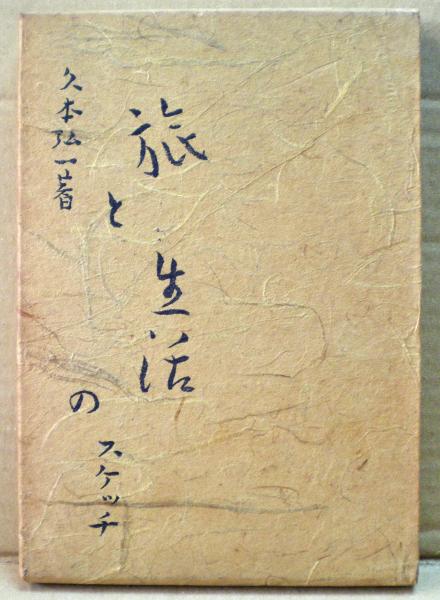 旅と生活のスケッチ
久本弘一著